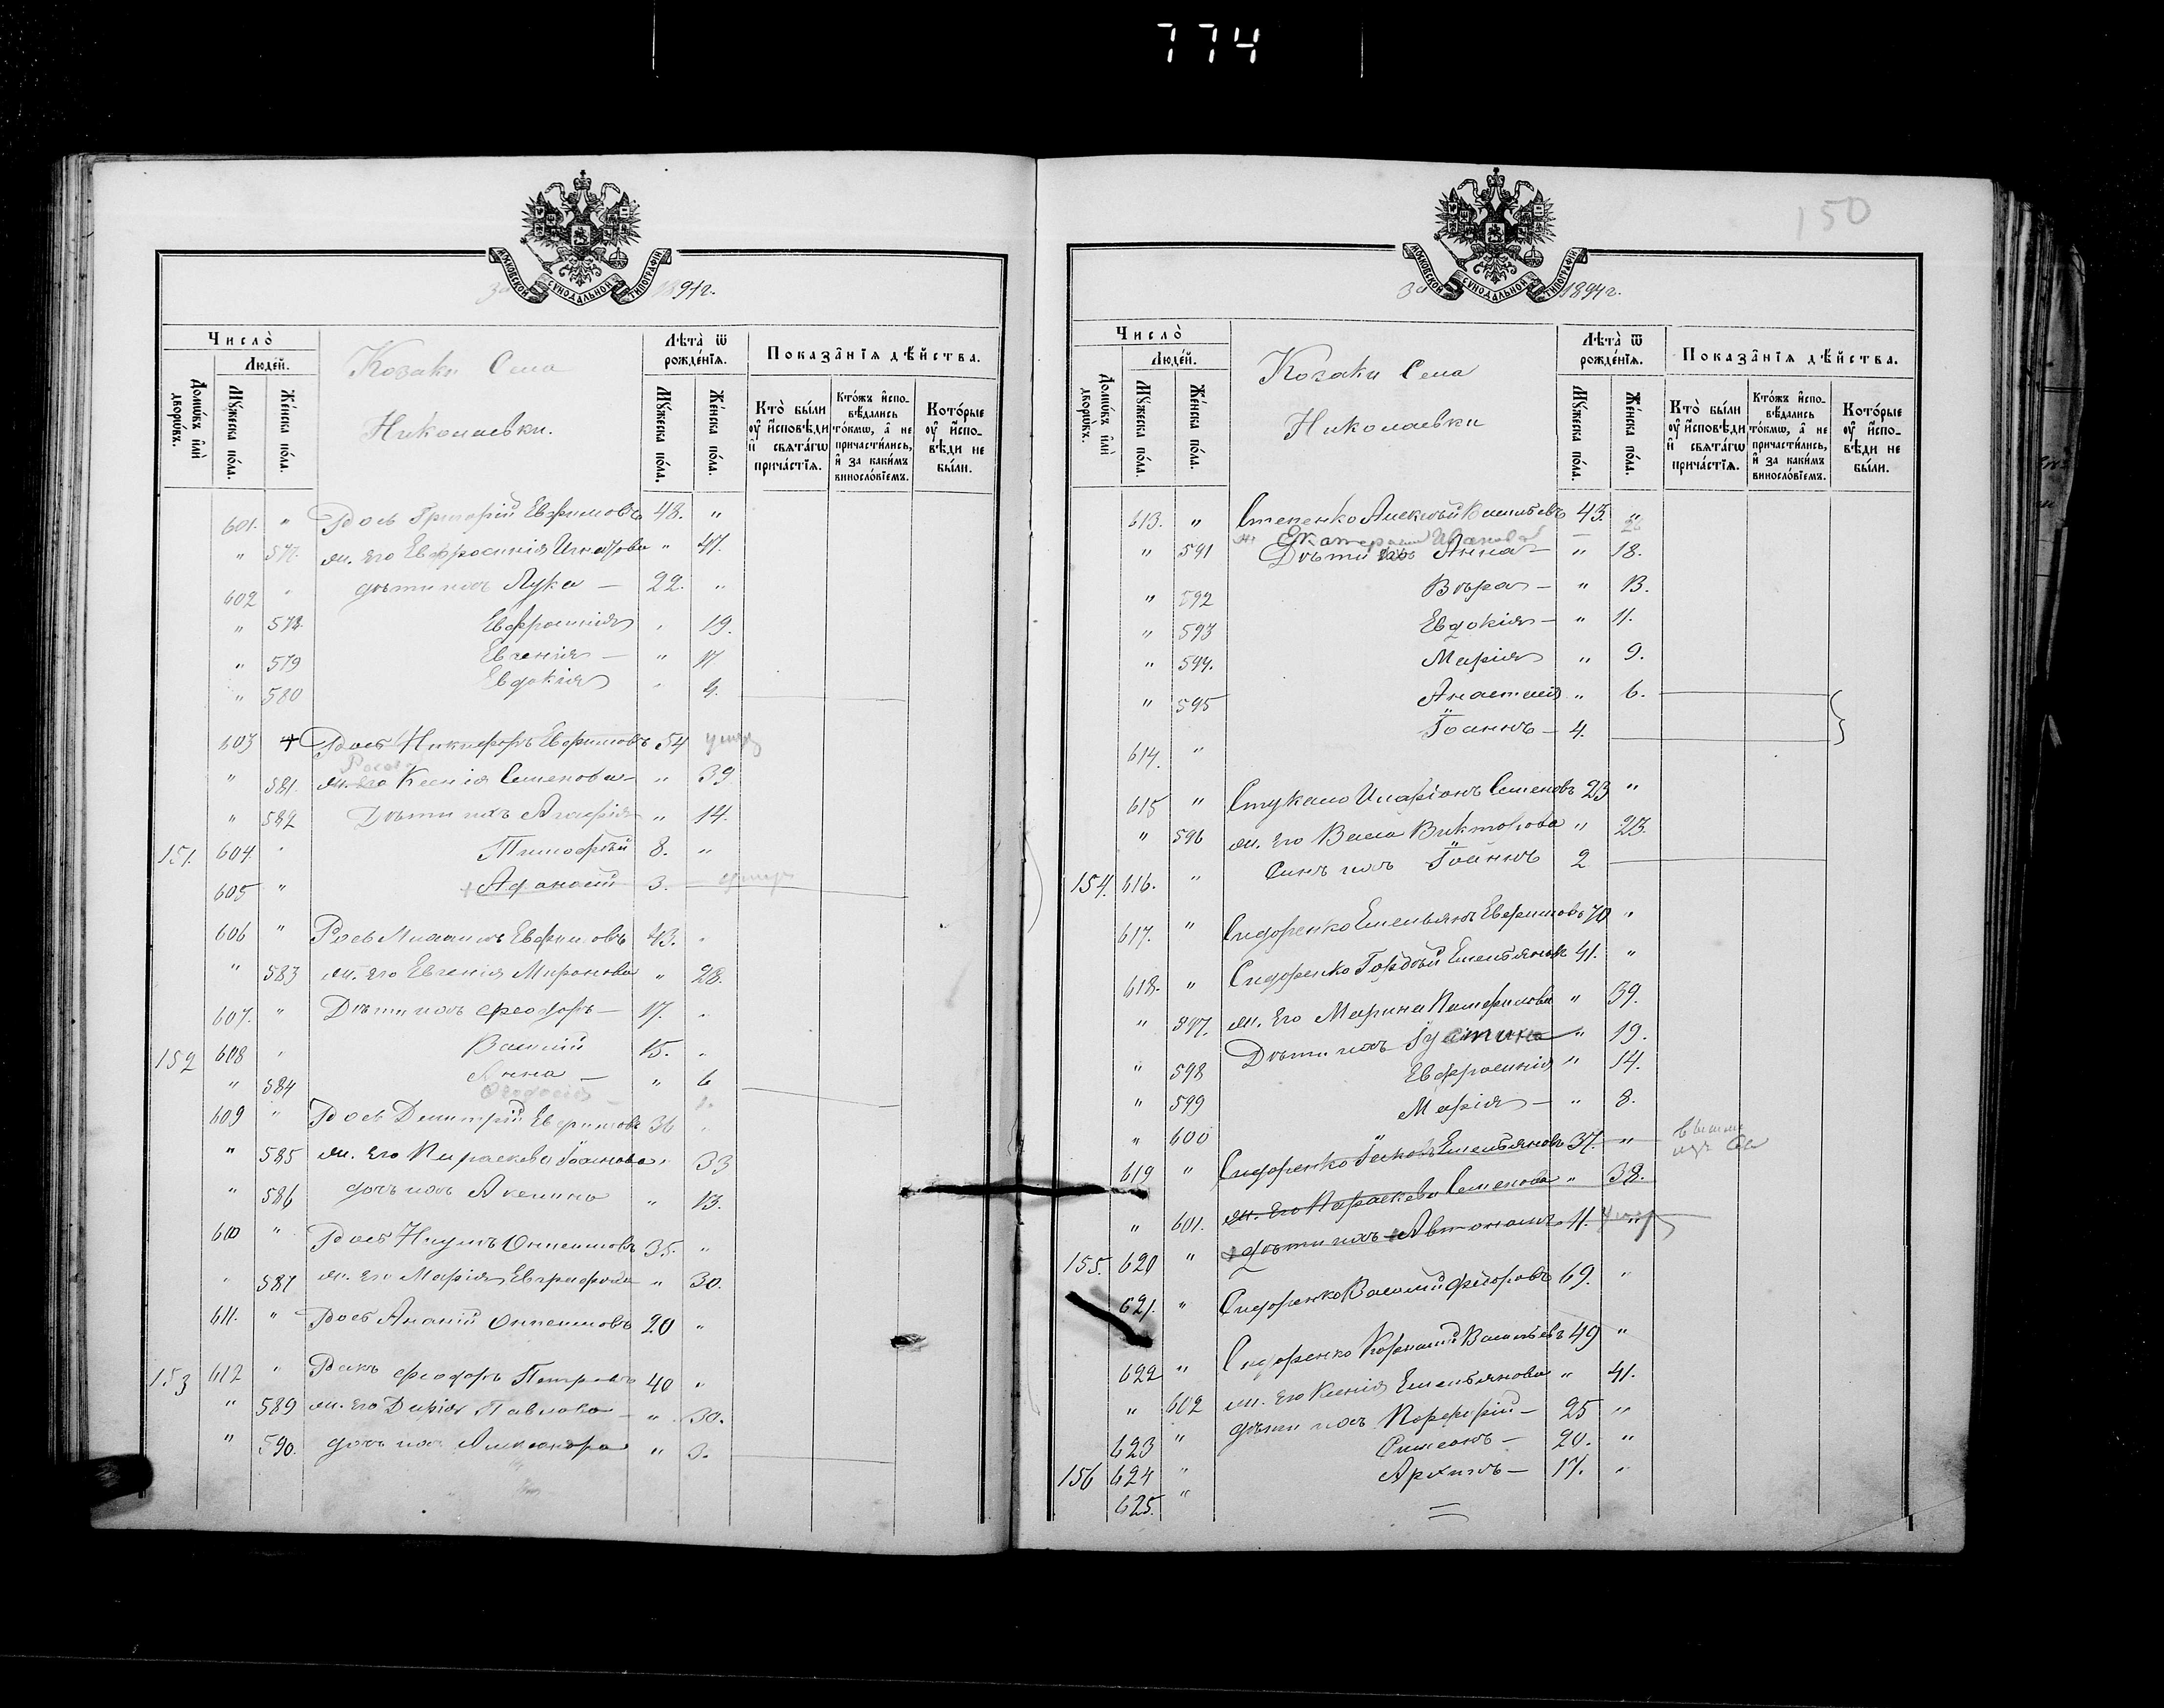 774
МОСКОВСКОЙ СѴНОДАЛЬНОЙ ТИПОГРАФІИ
за 1894г.
Число̀
Людей.
Домѡвъ и҆лѝ дворѡвъ.
Мꙋ́жеска по́ла.
Же́нска по́ла.
Козаки Села
Николаевки.
Лѣ́та ѿ рожде́нїѧ.
Мꙋ́жеска по́ла.
Же́нска по́ла.
Показа̑нїѧ дѣ́йства.
Кто̀ бы́ли ᲂу҆ и҆сповѣ́ди и҆ свѧта́гѡ прича́стїѧ.
Кто́жъ и҆спо-вѣ́дались то́кмѡ, а҆ не причасти́лись, и҆ за каки́мъ винословїемъ.
Кото́рые ᲂу҆ и҆спо-вѣ́ди не бы́ли.
601. " Рось Григорій Евфимовъ 48. "
" 577. ж. его Евфросинія Игнатова " 47.
602 " дѣти ихъ Лука — 22. "
" 578. Евфросинія " 19.
" 579 Евгенія — " 17
" 580 Евдокія " 4.
603 + Рось Никифоръ Евфимовъ 54 умер
" 581. ж. его Ксенія Семенова — " 39
" 582 Дѣти ихъ Агафія " 14.
151. 604. " Тимофѣй 8. "
605 " + Афанасій 3. — умер
606 " Рось Михаилъ Евфимовъ 43. "
" 583 ж. его Евгенія Миронова " 28.
607. " Дѣти ихъ Феодоръ — 17. "
152 608 " Василій 15. "
" 584 Анна — " 6
Феодосія —
609 " Рось Димитрій Евфимовъ 36 "
" 585 ж. его Параскева Іоанова " 33
" 586 дочь ихъ Акелина " 13.
610 " Рось Наумъ Онисимовъ 35. "
" 587 ж. его Марія Евграфова " 30.
611. " Рось Ананій Онисимовъ 20 "
153 612 " Ракъ Феодоръ Петровъ 40 "
" 589 ж. его Дарія Павлова — " 30.
" 590. дочь ихъ Александра " 3.
150
МОСКОВСКОЙ СѴНОДАЛЬНОЙ ТИПОГРАФІИ
За 1894г.
Число̀
Людей.
Домѡвъ и҆лѝ дворѡвъ.
Мꙋ́жеска по́ла.
Же́нска по́ла.
Козаки Села
Николаевки
Лѣ́та ѿ рожде́нїѧ.
Мꙋ́жеска по́ла.
Же́нска по́ла.
Показа̑нїѧ дѣ́йства.
Кто̀ бы́ли ᲂу҆ и҆сповѣ́ди и҆ свѧта́гѡ прича́стїѧ.
Кто́жъ и҆спо-вѣ́дались то́кмѡ, а҆ не причасти́лись, и҆ за каки́мъ винословїемъ.
Кото́рые ᲂу҆ и҆спо-вѣ́ди не бы́ли.
613. " Степенко Алексѣй Васильевъ 43. "
ж. Екатерина Иванова
" 591 Дѣти ихъ Анна — " 18.
" 592 Вѣра — " 13.
" 593 Евдокія — " 11.
" 594. Марія " 9.
" 595 Анастасія " 6.
614. " Іоаннъ — 4.
615 " Стукало Иларіонъ Семеновъ 23 "
" 596 ж. его Васса Викторова " 23.
154. 616. " Сынъ ихъ Іоаннъ 2
617. " Сидоренко Емельянъ Евфимовъ 70 "
618. " Сидоренко Гордѣй Емельяновъ 41. "
" 597. ж. его Марина Панфилова " 39.
" 598 Дѣти ихъ Іустина " 19.
" 599 Евфросинія " 14.
" 600 Марія — " 8.
619 " Сидоренко Іаковъ Емельяновъ 37. "
" 601. ж. его Параскева Семенова " 38.
155. 620 " + дѣти ихъ Автономъ 11. умер
621. " Сидоренко Василій Феодоровъ 69. "
622 " Сидоренко Корнилій Васильевъ 49 "
" 602 ж. его Ксенія Емельянова " 41.
623 " дѣти ихъ Порфирій — 25 "
156 624 " Симеонъ — 20. "
625. " Архипъ — 17. "